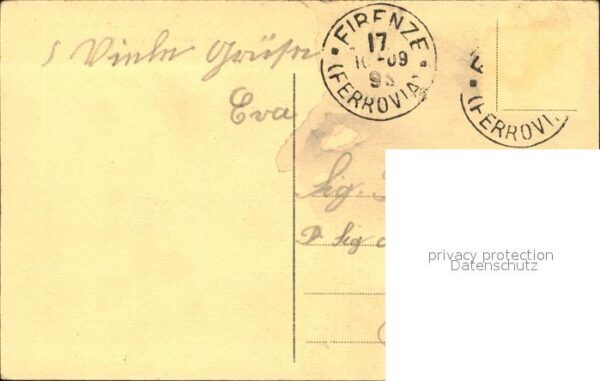 Viele Grüße
Eva
FIRENZE
17
10-09
(FERROVIA)
(FERROVI
Sig.
P. Sig
privacy protection
Datenschutz